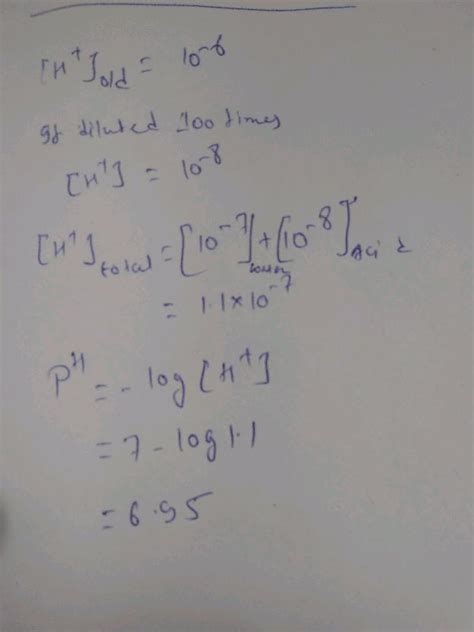 [H⁺]old = 10⁻⁶
If diluted 100 times
[H⁺] = 10⁻⁸
[H⁺]total = [10⁻⁷]water + [10⁻⁸]Acid
= 1.1×10⁻⁷
Pᴴ = - log [H⁺]
= 7 - log 1.1
= 6.95